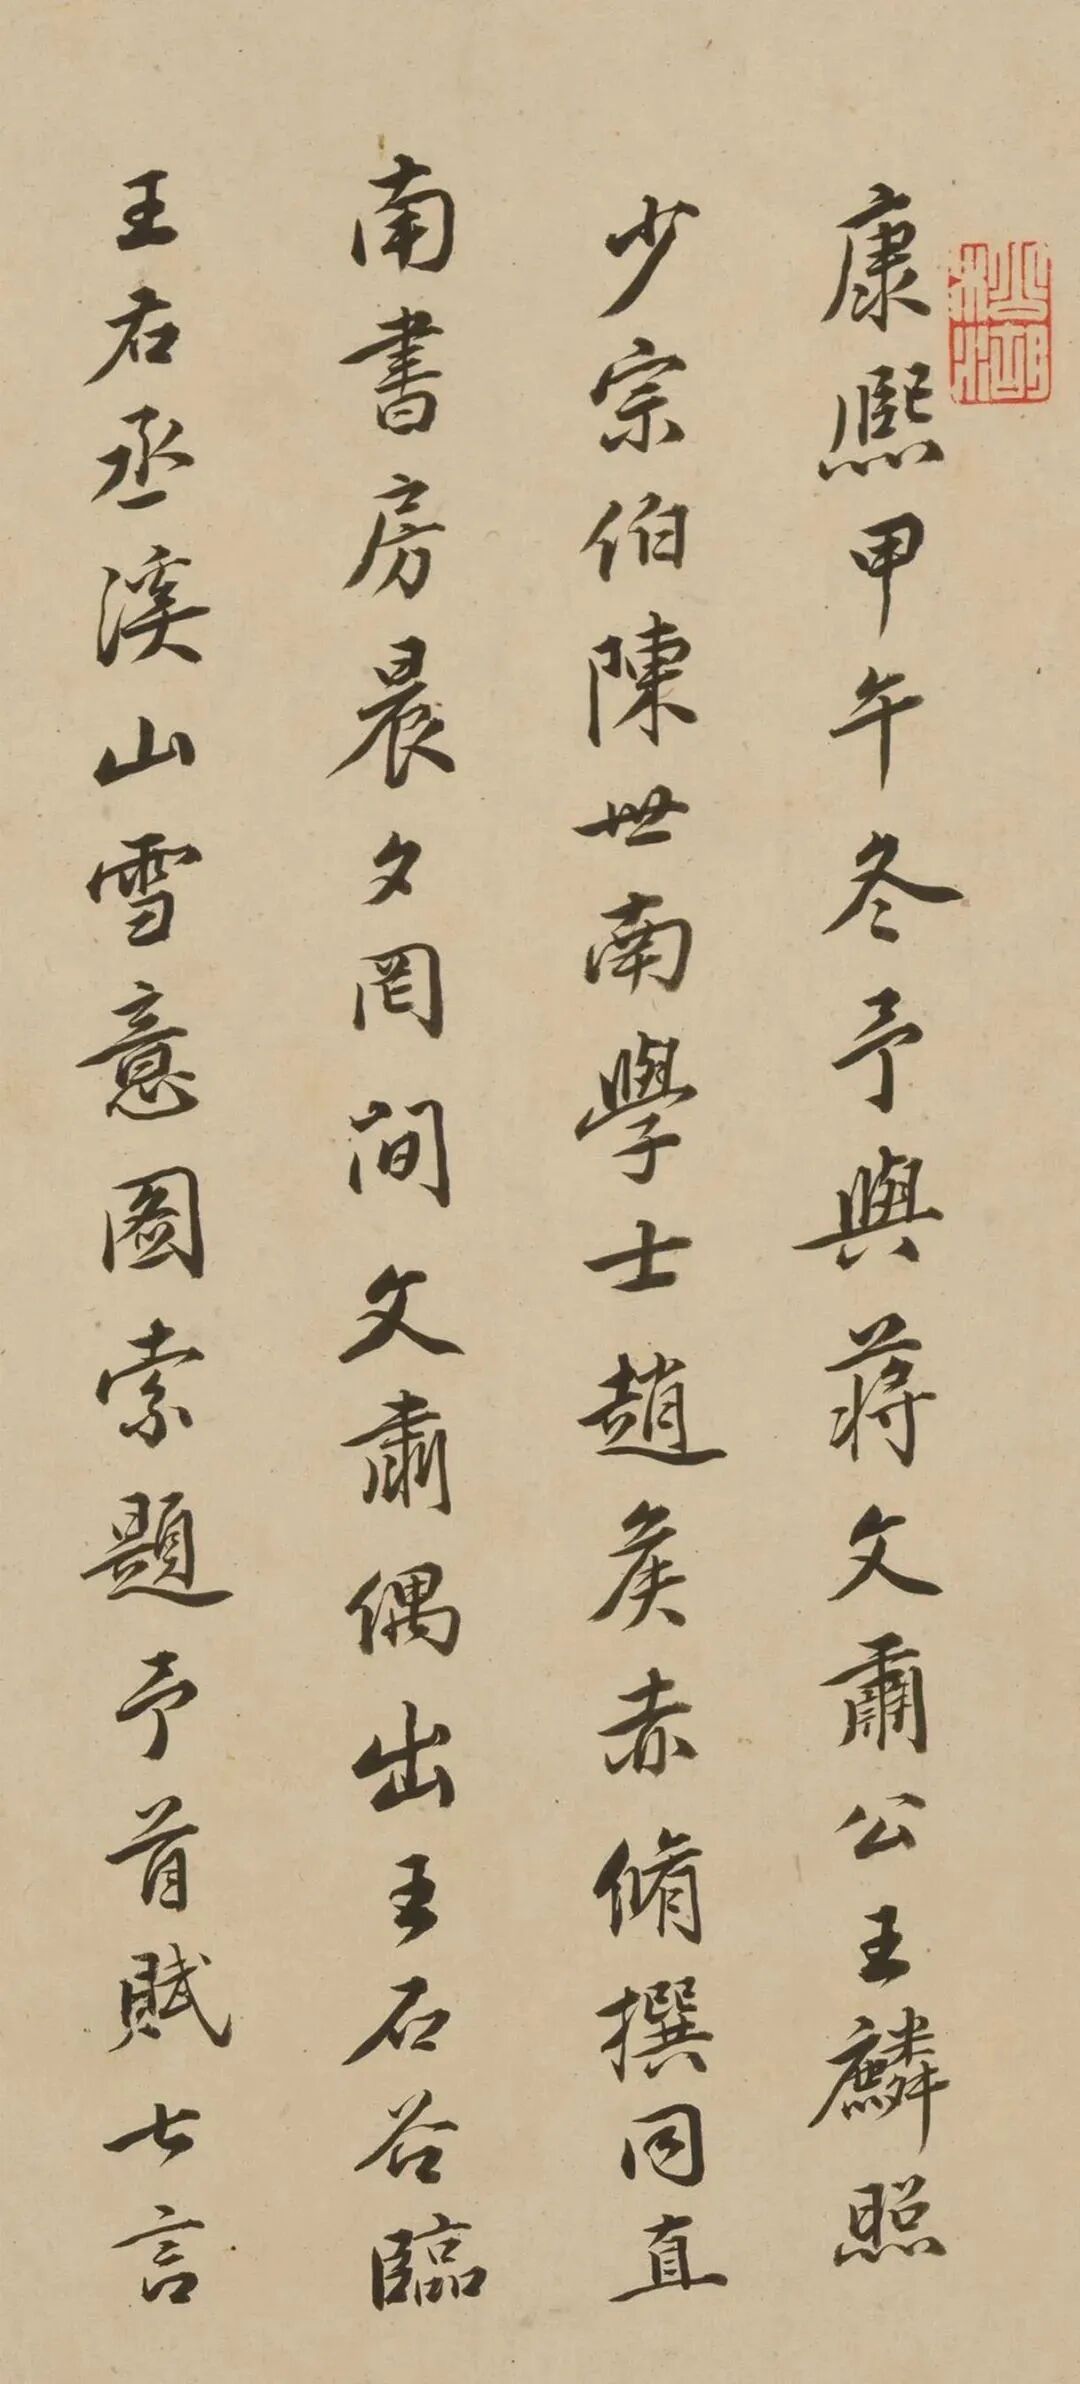 康熙甲午冬予與蔣文肅公王麟照
少宗伯陳世南學士趙矦赤脩撰同直
南書房晨夕罔間文肅偶出王石谷臨
王右丞溪山雪意圖索題予首賦七言